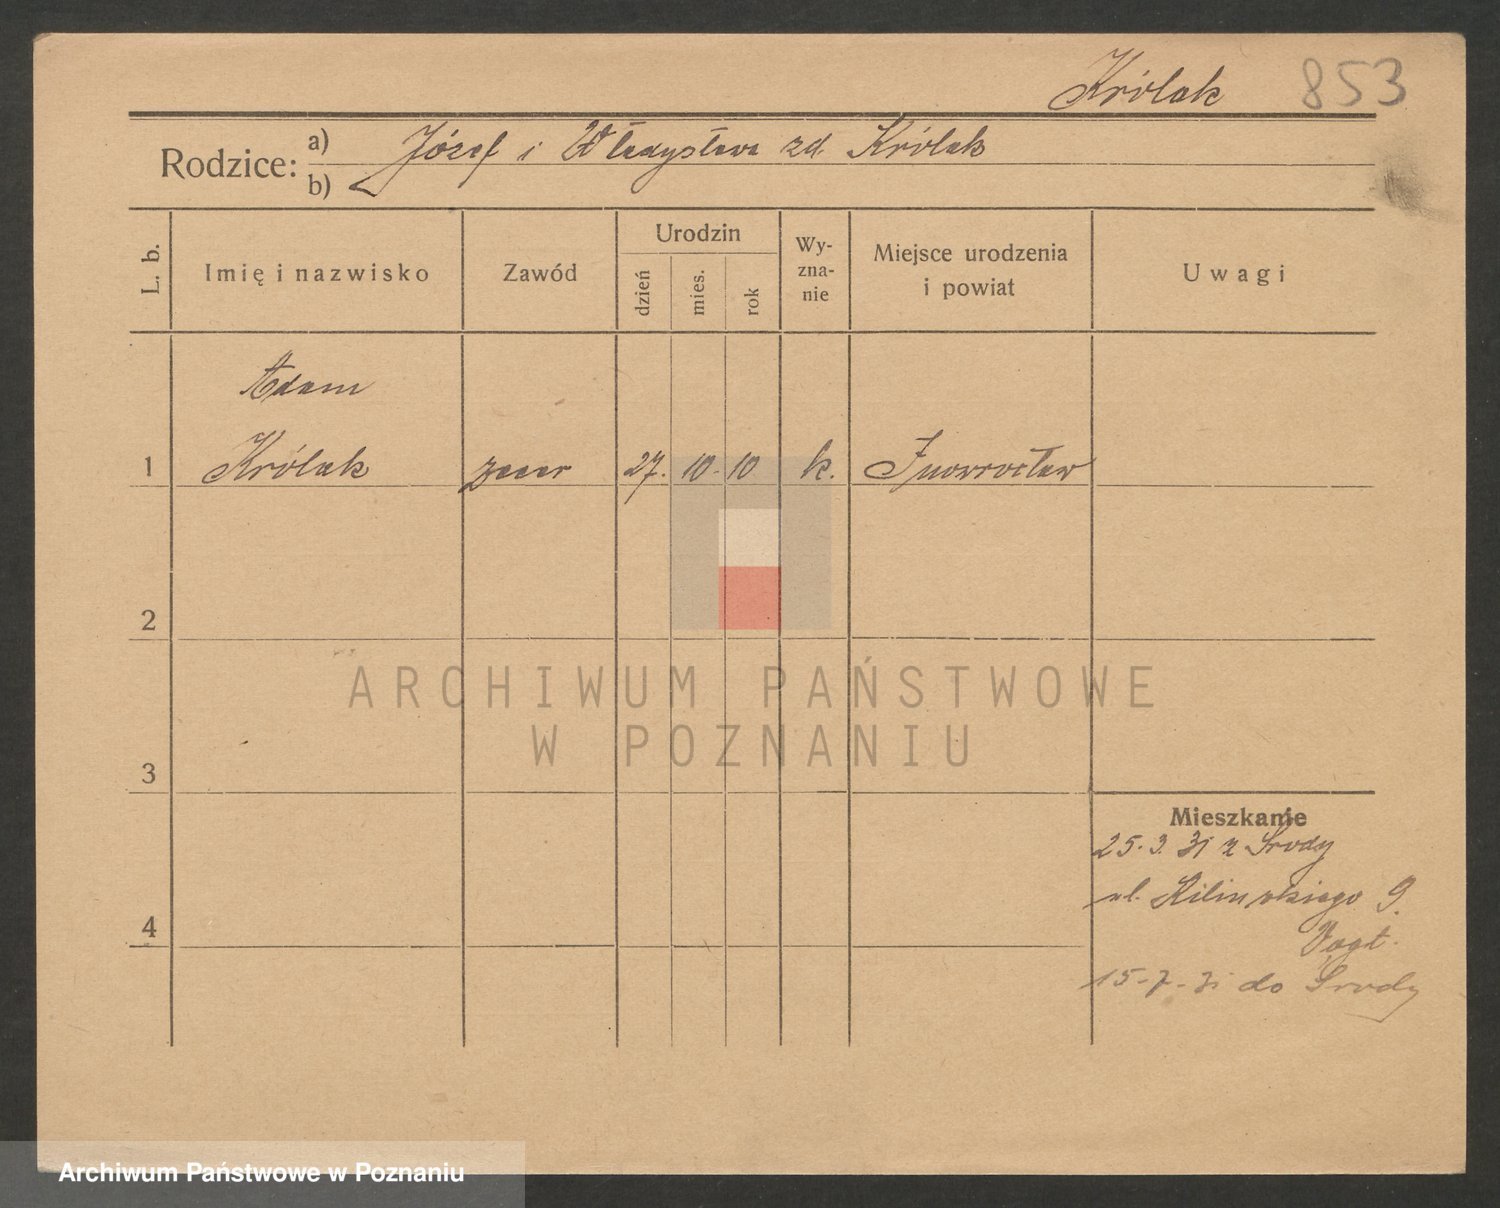 Królak 853
Rodzice: a) Józef i Władysława zd. Królak
b)
L. b.
Imię i nazwisko
Zawód
Urodzin
dzień
mies.
rok
Wy-
zna-
nie
Miejsce urodzenia
i powiat
Uwagi
Adam
1 Królak zecer 27. 10. 10 k. Inowrocław
2
3
Mieszkanie
25. 3. 31 z Środy
ul. Kilińskiego 9.
4
Vogt.
15-7-31 do Środy
ARCHIWUM PAŃSTWOWE
W POZNANIU
Archiwum Państwowe w Poznaniu